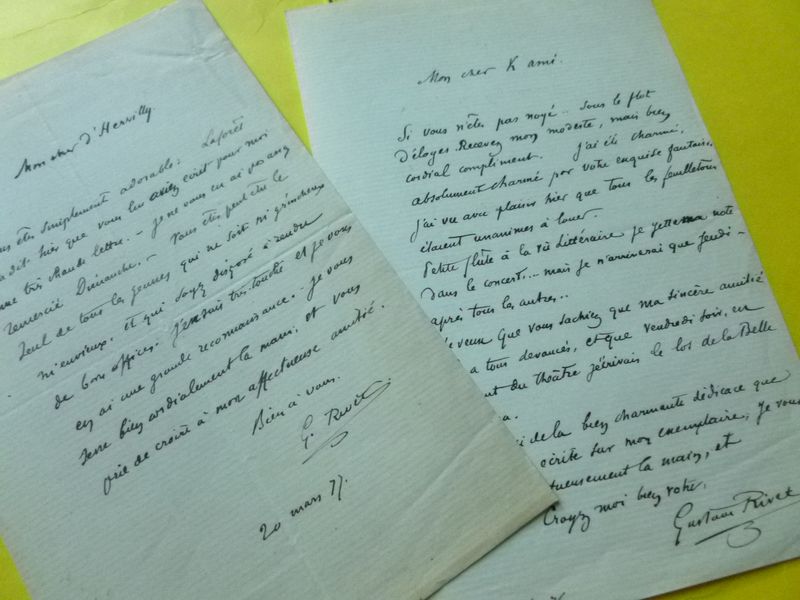 Mon cher d'Hervilly.
êtes simplement adorable. Laforêt
dit hier que vous lui aviez écrit pour moi
une très chaude lettre. – Je ne vous en ai pas ang
remercié Dimanche. – Vous êtes peut être le
seul de tous les jeunes qui ne soit ni grincheux
ni envieux, et qui soyez disposé à rendre
de bons offices. J'en suis très touché et je vous
en ai une grande reconnaissance. – Je vous
serre bien cordialement la main, et vous
prie de croire à mon affectueuse amitié.
Bien à vous.
G. Rivet
20 mars 77.
Mon cher X ami.
Si vous n'êtes pas noyé... sous le flot
d'éloges. Recevez mon modeste, mais bien
cordial compliment. J'ai été charmé,
absolument charmé par votre exquise fantaisie.
J'ai vu avec plaisir hier que tous les feuilletons
étaient unanimes à louer.
Petite flûte à la Vie Littéraire je jette ma note
dans le concert... mais je n'arriverai que Jeudi –
après tous les autres..
Je veux que vous sachiez que ma sincère amitié
a tous devancés, et que vendredi soir, en
du théâtre j'écrivais le los de la Belle
de la bien charmante dédicace que
écrite sur mon exemplaire; Je vous
la main, et
Croyez moi bien votre.
Gustave Rivet